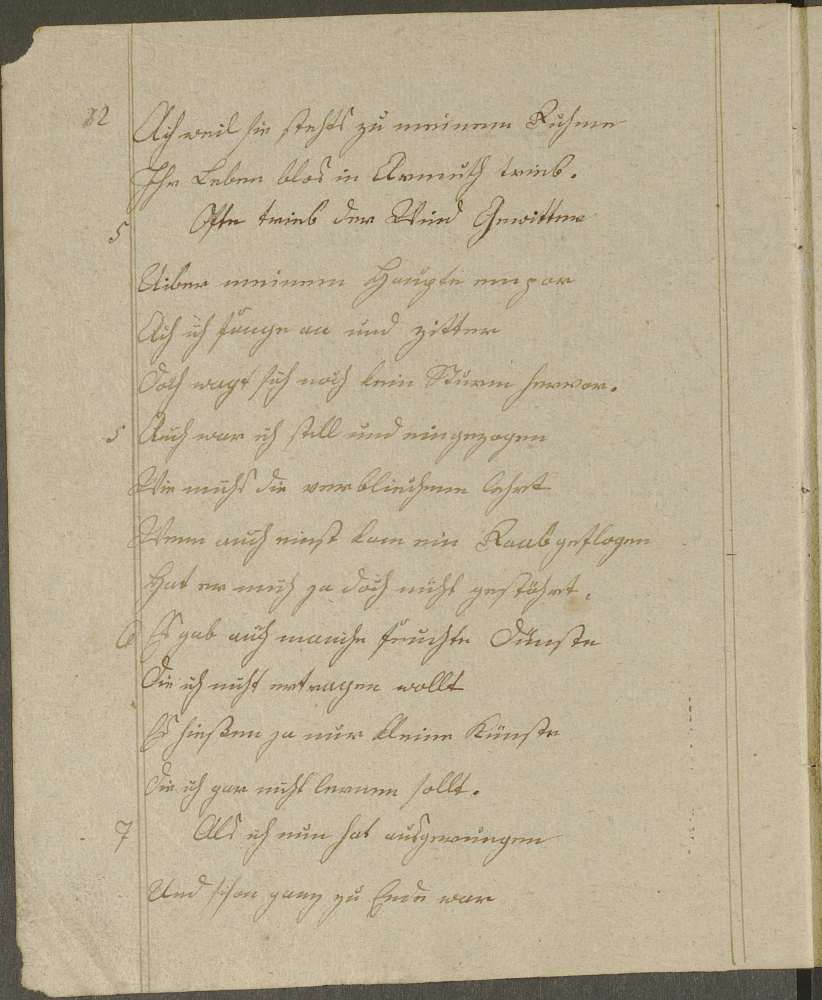 82
Ach weil sie stehts zu meinem Ruhme
Ihr Leben blos in Armuth trieb.
5 Ofte trieb der Wind Gewitter
Uiber meinem Haupte empor
Ach ich fange an und zitter
Doch wagt sich noch kein Sturm hervor.
5 Auch war ich still und eingezogen
Wie michs die verbliechene lehrt
Wenn auch einst kam ein Raab geflogen
Hat er mich ja doch nicht gestöhrt.
6 Es gab auch manche feuchte Dünste
Die ich nicht ertragen wollt
Es hießen ja nur kleine Künste
Die ich gar nicht lernen sollt.
7 Als ich nun hat ausgerungen
Und schon ganz zu Ende war